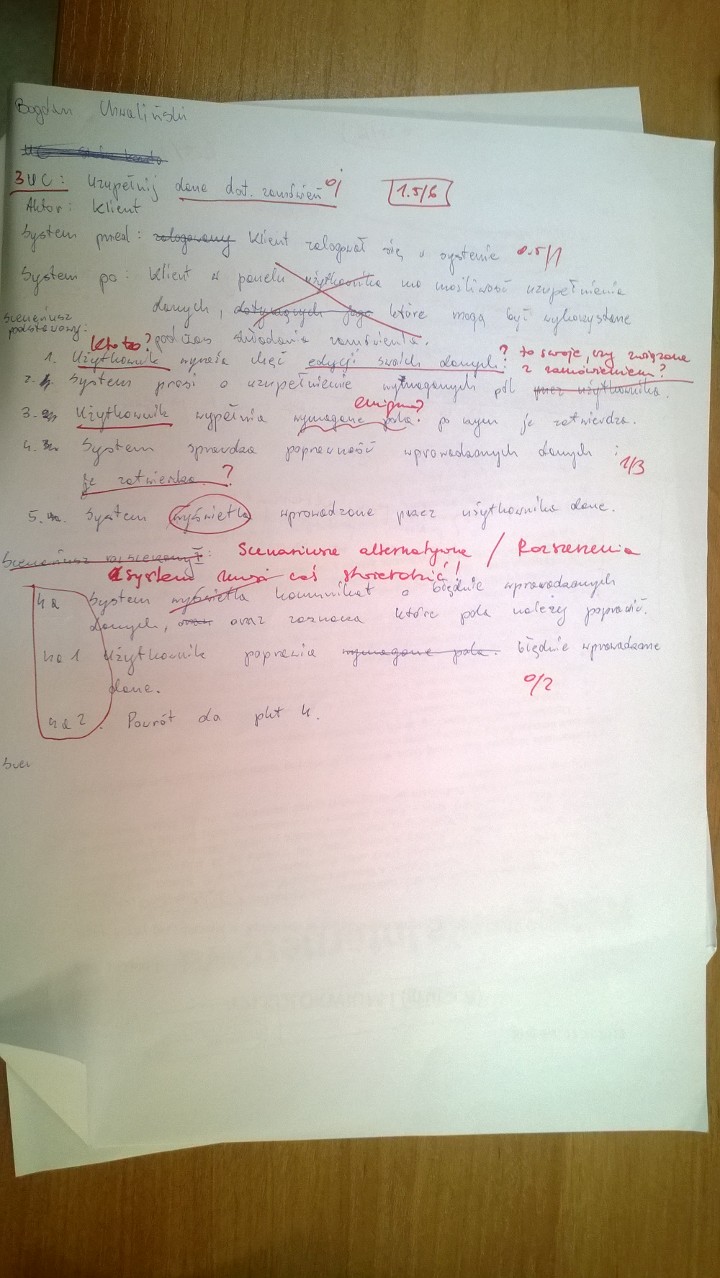 Bogdan Chwaliński
3 UC: Uzupełnij dane dot. zamówień 0/ 1.5/6
Aktor: Klient
System przed: zalogowany Klient zalogował się w systemie 0.5/1
System po: Klient w panelu użytkownika ma możliwość uzupełnienia
danych, dotyczących jego które mogą być wykorzystane
Scenariusz podstawowy: podczas składania zamówienia.
Kto to? ? to swoje, czy związane z zamówieniem?
1. Użytkownik wyraża chęć edycji swoich danych.
2. System prosi o uzupełnienie wymaganych pól przez użytkownika.
enigma?
3. Użytkownik wypełnia wymagane pola. po czym je zatwierdza.
4. System sprawdza poprawność wprowadzonych danych i 1/3
je zatwierdza. ?
5. System wyświetla wprowadzone przez użytkownika dane.
Scenariusz rozszerzony: Scenariusze alternatywne / Rozszerzenia
system musi coś stwierdzić!
4a System wyświetla komunikat o błędnie wprowadzonych
danych, oraz zaznacza które pola należy poprawić.
4a1 Użytkownik poprawia wymagane pola. błędnie wprowadzone
dane. 0/2
4a2. Powrót do pkt 4.
Scen